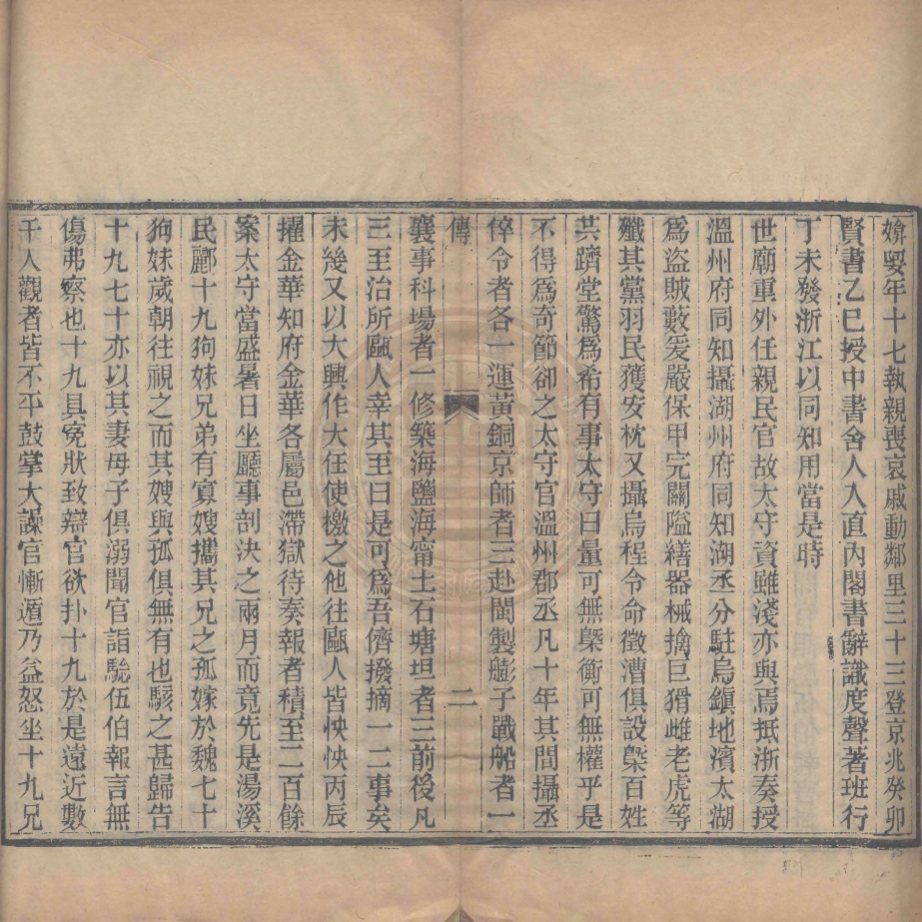 媕娿年十七執親喪哀戚動鄰里三十三登京兆癸卯
賢書乙巳授中書舍人入直內閣書辭識度聲著班行
丁未發浙江以同知用當是時
世廟重外任親民官故太守資雖淺亦與焉抵浙奏授
溫州府同知攝湖州府同知湖丞分駐烏鎮地濱太湖
為盜賊藪爰嚴保甲完關隘繕器械擒巨猾雌老虎等
殲其黨羽民獲安枕又攝烏程令命徵漕俱設槩百姓
共躋堂驚為希有事太守曰量可無槩衡可無權乎是
不得為奇節卻之太守官溫州郡丞凡十年其間攝丞
倅令者各一運黃銅京師者三赴閩製艍子戰船者一
傳
二
襄事科場者一修築海鹽海甯土石塘坦者三前後凡
三至治所甌人幸其至曰是可為吾儕撥摘一二事矣
未幾又以大興作大任使檄之他往甌人皆怏怏丙辰
擢金華知府金華各屬邑滯獄待奏報者積至二百餘
案太守當盛暑日坐廳事剖決之兩月而竟先是湯溪
民酈十九狗妹兄弟有寡嫂攜其兄之孤嫁於魏七十
狗妹歲朝往視之而其嫂與孤俱無有也駭之甚歸告
十九七十亦以其妻母子俱溺聞官詣驗伍伯報言無
傷弗察也十九具冤狀致辯官欲扑十九於是遠近數
千人觀者皆不平鼓掌大譟官慚遁乃益怒坐十九兄